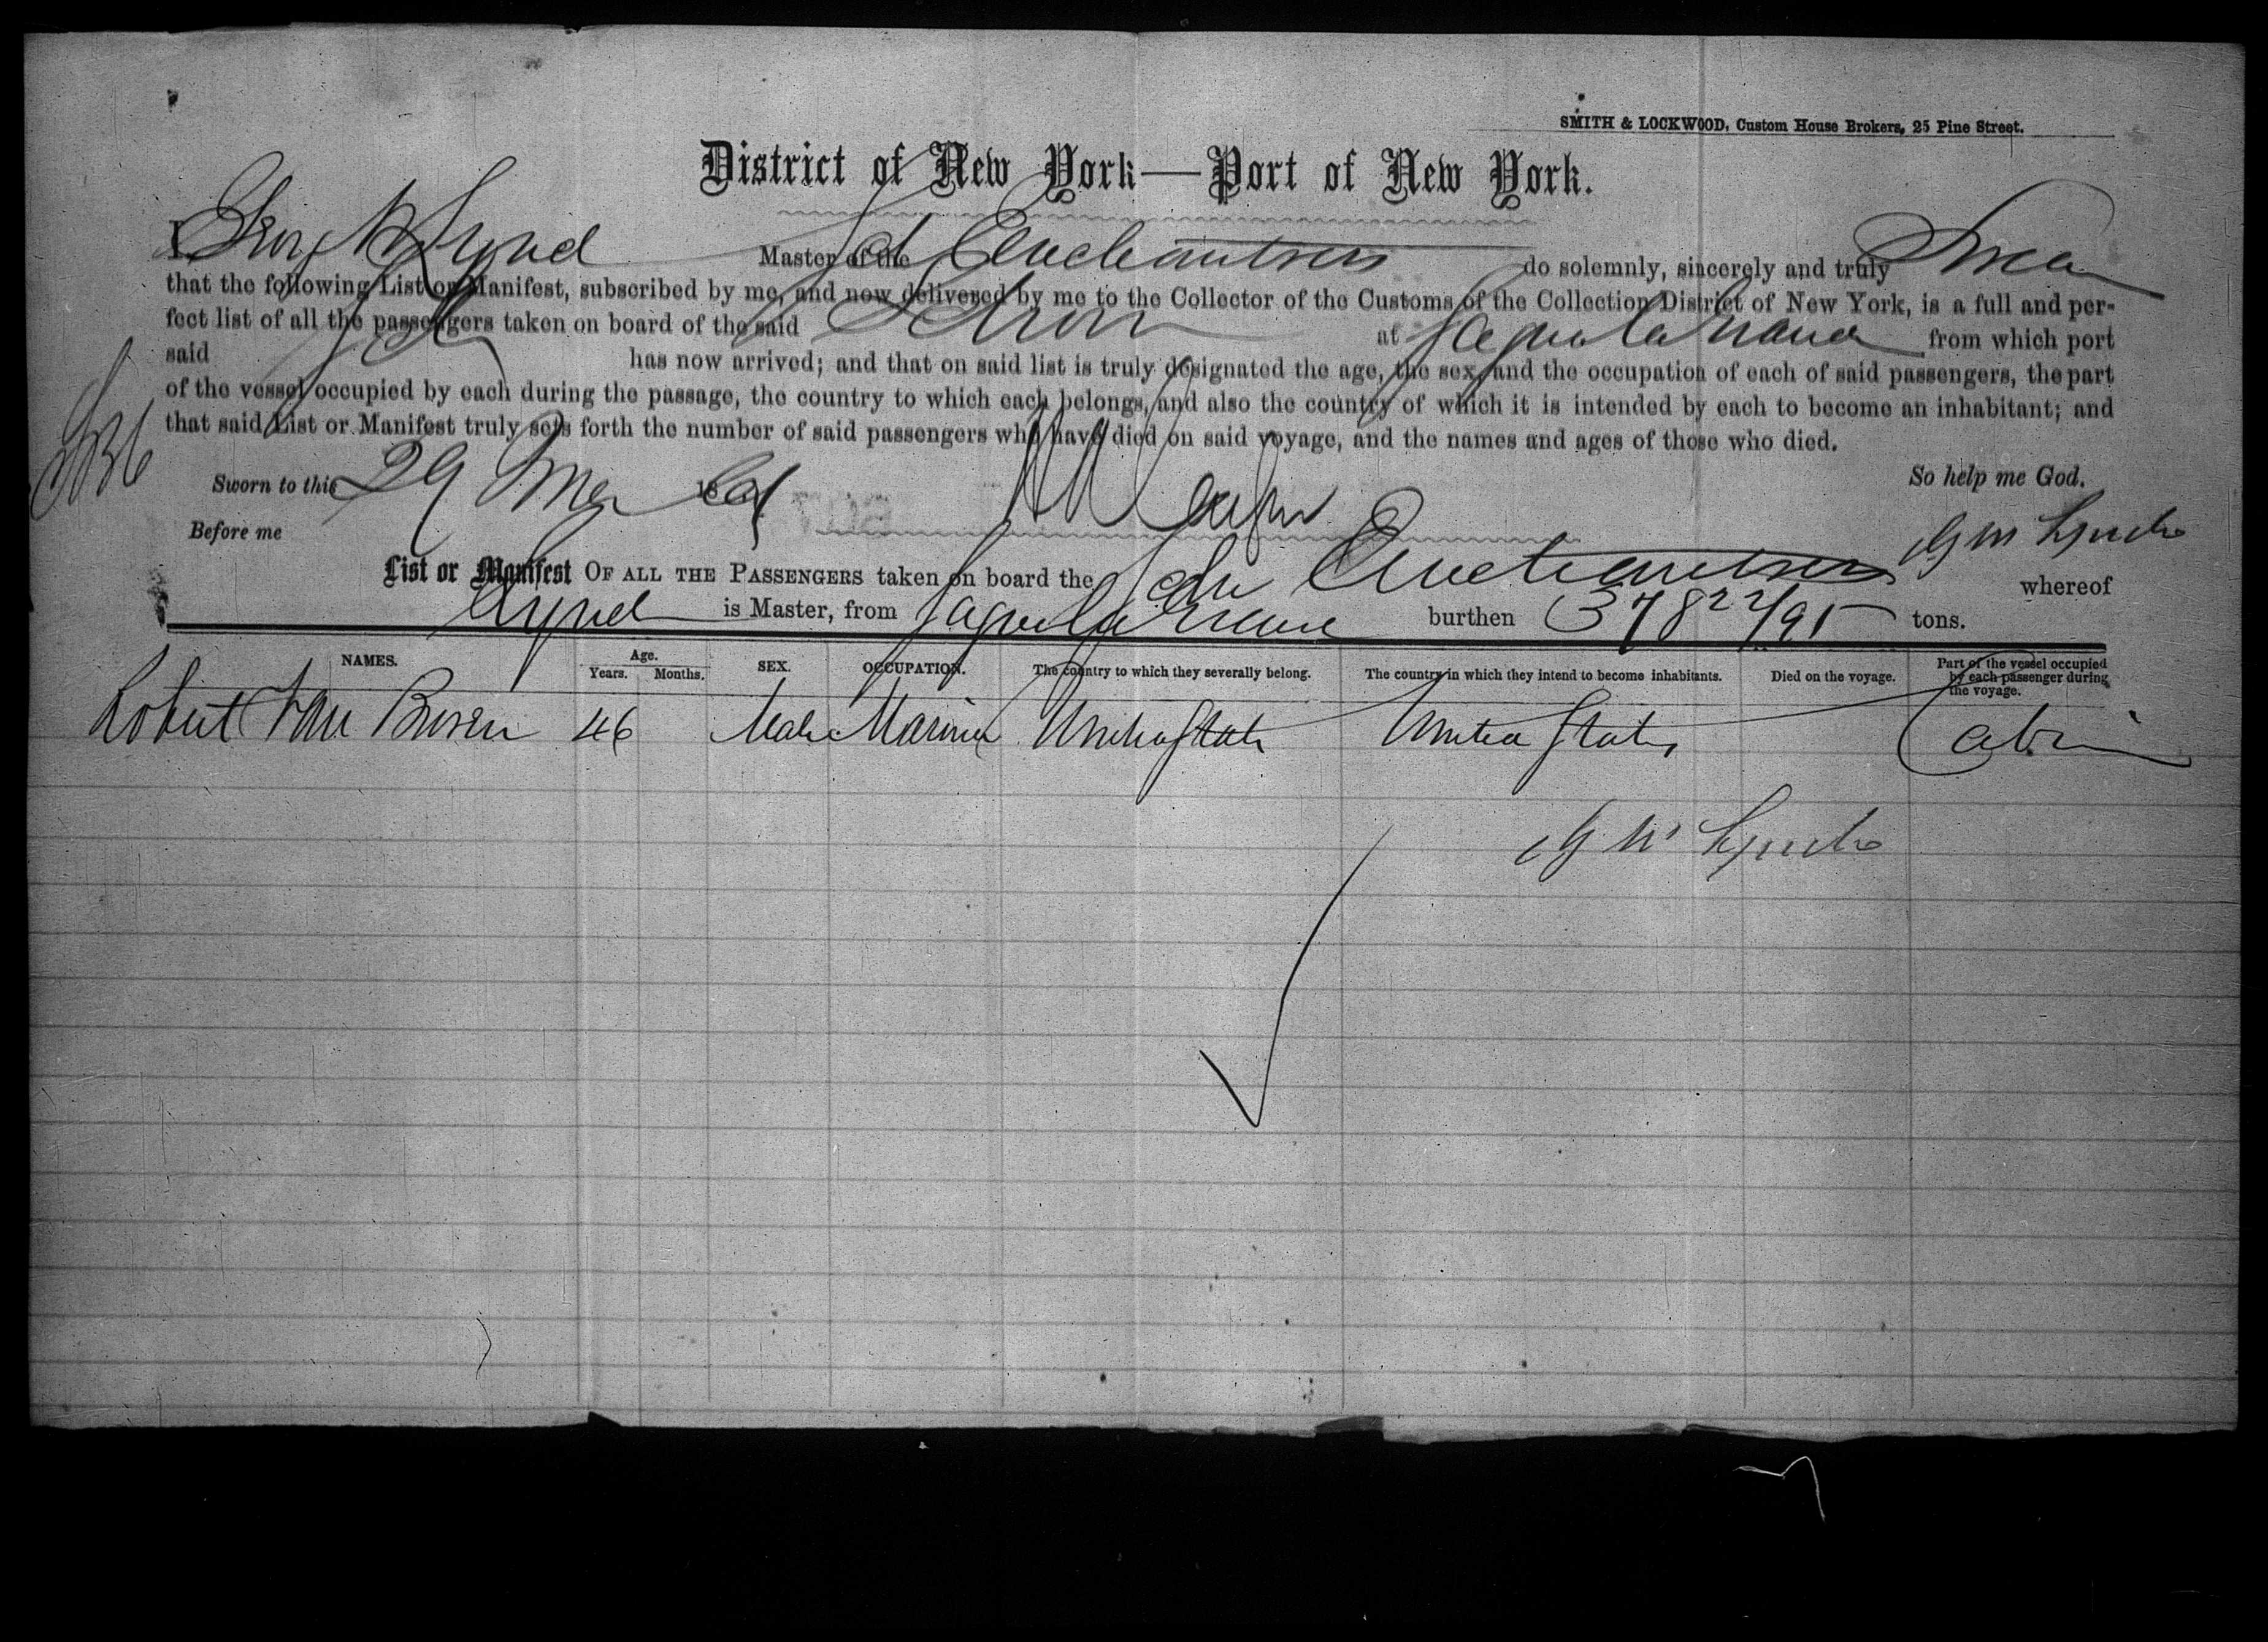 SMITH & LOCKWOOD, Custom House Brokers, 25 Pine Street.
District of New York—Port of New York.
I, Geo W Lynch Master of the Sch Enchantress do solemnly, sincerely and truly Swear
that the following List or Manifest, subscribed by me, and now delivered by me to the Collector of the Customs of the Collection District of New York, is a full and per-
fect list of all the passengers taken on board of the said Schr at Sagua la Grande from which port
said has now arrived; and that on said list is truly designated the age, the sex, and the occupation of each of said passengers, the part
of the vessel occupied by each during the passage, the country to which each belongs, and also the country of which it is intended by each to become an inhabitant; and
that said List or Manifest truly sets forth the number of said passengers who have died on said voyage, and the names and ages of those who died.
Sworn to this 29 18 So help me God.
Before me G W Lynch
List or Manifest OF ALL THE PASSENGERS taken on board the Schr Enchantress whereof
Lynch is Master, from Sagua la Grande burthen 378 22/95 tons.
NAMES. Age. Years. Months. SEX. OCCUPATION. The country to which they severally belong. The country in which they intend to become inhabitants. Died on the voyage. Part of the vessel occupied by each passenger during the voyage.
Robert Van Buren 46 Male Mariner United States United States Cabin
G W Lynch